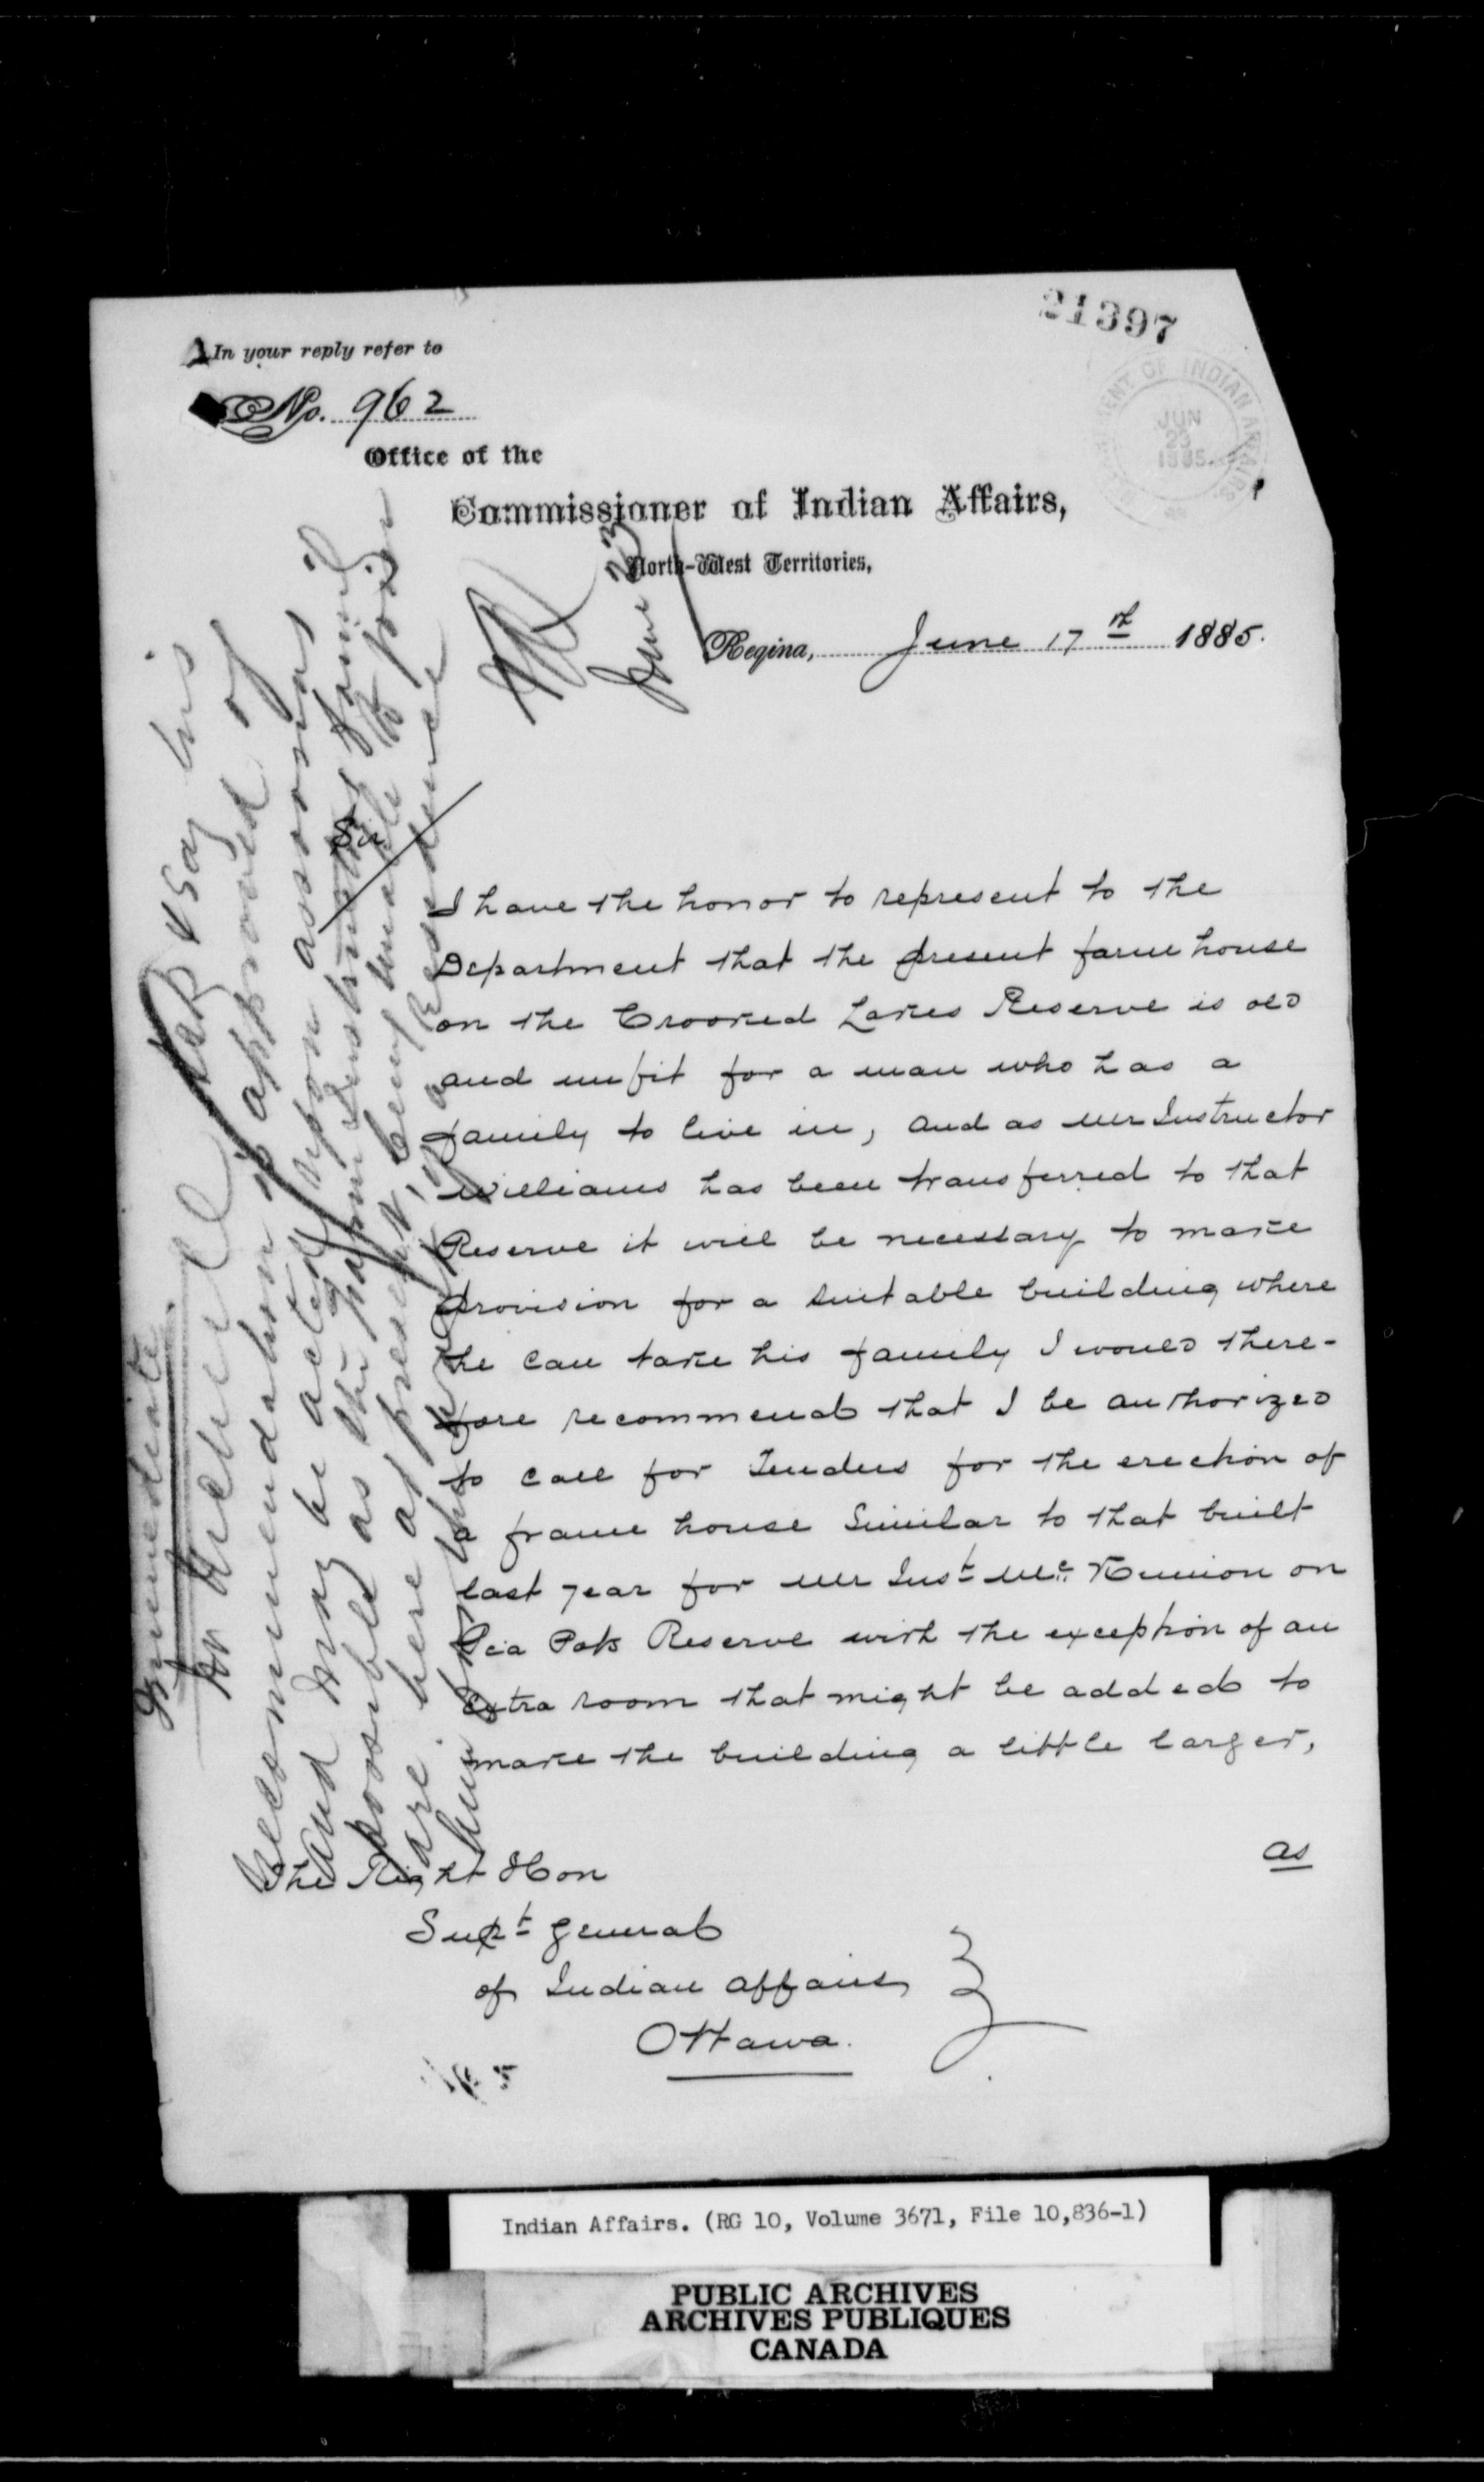 21397
In your reply refer to
No. 962
Office of the
Commissioner of Indian Affairs,
North-West Territories,
Regina, June 17th 1885.
DEPARTMENT OF INDIAN AFFAIRS
JUN
23
1885
June 23
Sir
I have the honor to represent to the
Department that the present farm house
on the Crooked Lakes Reserve is old
and unfit for a man who has a
family to live in, and as Mr Instructor
Williams has been transferred to that
Reserve it will be necessary to make
provision for a suitable building where
he can take his family I would there-
fore recommend that I be authorized
to call for Tenders for the erection of
a frame house Similar to that built
last year for Mr Inst Mc Kinnon on
Pia Pots Reserve with the exception of an
extra room that might be added to
make the building a little larger,
as
The Right Hon
Supt General
of Indian Affairs
Ottawa.
Immediate
Mr McNeill & say his
recommendation is approved of
and may be acted upon as soon as
possible as the Farm Instructor's family
are here at present, being unable to join
him
Indian Affairs. (RG 10, Volume 3671, File 10,836-1)
PUBLIC ARCHIVES
ARCHIVES PUBLIQUES
CANADA